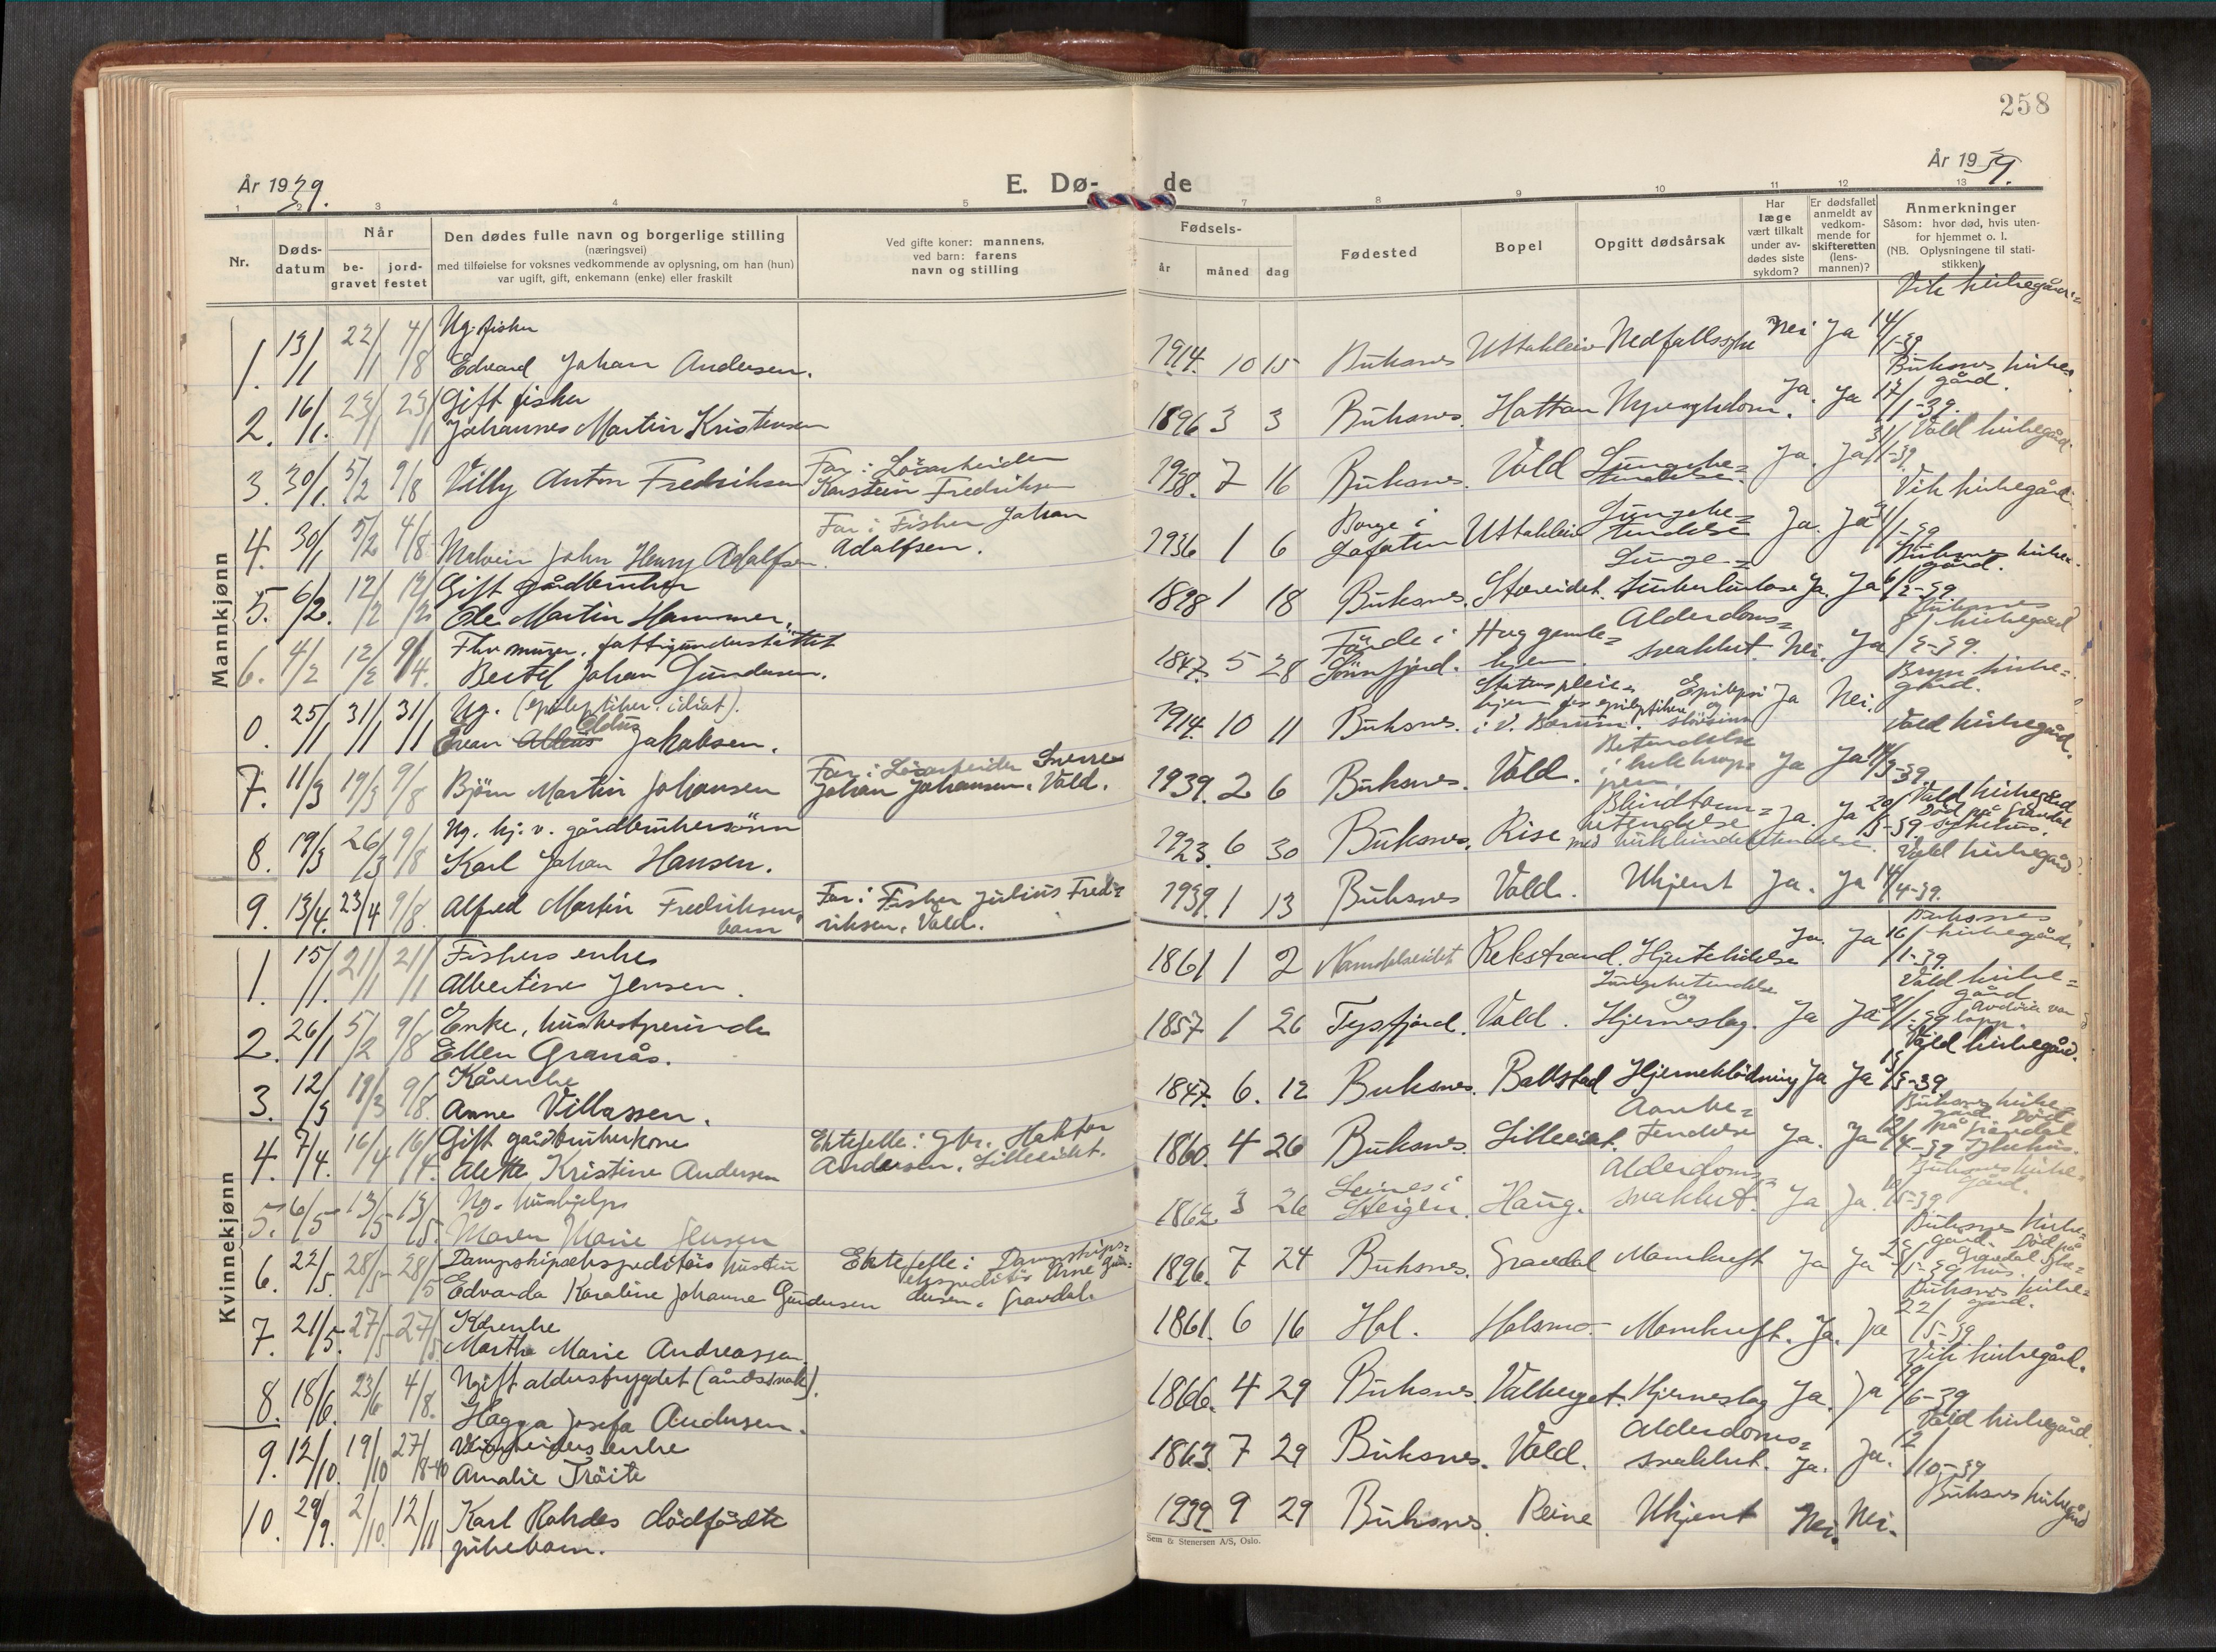 258
År 1939.
E. Dø-
de
År 1939.
1 2 3 4 5 7 8 9 10 11 12 13
Nr.
Døds-
datum
Når
be-
gravet
jord-
festet
Den dødes fulle navn og borgerlige stilling
(næringsvei)
med tilføielse for voksnes vedkommende av oplysning, om han (hun)
var ugift, gift, enkemann (enke) eller fraskilt
Ved gifte koner: mannens,
ved barn: farens
navn og stilling
Fødsels-
år måned dag
Fødested
Bopel
Opgitt dødsårsak
Har
læge
vært tilkalt
under av-
dødes siste
sykdom?
Er dødsfallet
anmeldt av
vedkom-
mende for
skifteretten
(lens-
mannen)?
Anmerkninger
Såsom: hvor død, hvis uten-
for hjemmet o. l.
(NB. Oplysningene til stati-
stikken)
Mannkjønn
1. 13/1 22/1 4/8 Ug. fisker
Edvard Johan Andersen.
1914. 10 15 Buksnes Uttakleiv Nei Ja 14/1-39 Vik kirkegård
2. 16/1. 23/1 23/1 Gift fisker
Johannes Martin Kristensen
1896 3 3 Buksnes. Hattan Ja. Ja 17/1-39. Buksnes kirke-
gård.
3. 30/1. 5/2 9/8 Villy Anton Fredriksen
Far: Løsarbeider
Karstein Fredriksen
1938. 7 16 Buksnes. Vold Lungebe=
tendelse. Ja. Ja 31/1-39. Vold kirkegård.
4. 30/1 5/2 4/8 Malvin John Henry Adolfsen.
Far: Fisker Johan
Adolfsen.
1936 1 6 Borge i
Lofoten Uttakleiv Lungebe=
tendelse Ja. Ja Vik kirkegård.
5. 6/2. 12/2 12/2 Gift gårdbruker
Ole Martin Hammer.
1898 1 18 Buksnes. Storeidet. Lunge=
tuberkulose Ja. Ja 6/2-39. Buksnes kirke-
gård.
6. 4/2 12/2 9/4. Fhv. murer. fattigunderstøttet
Bertel Johan Gundersen.
1847. 5 28 Førde i
Sønnfjord. Hag gamle=
hjem. Alderdoms=
svakhet. Nei. Ja 8/2-39. Buksnes
kirkegård
0. 25/1 31/1 31/1 Ug. (epileptiker. idiot).
Evan Jakobsen.
1914. 10 11 Buksnes. Statens pleie=
hjem for epileptikere
i V. Bærum. Epilepsi
og
Ja Nei. Bryn kirke=
gård.
7. 11/3 19/3 9/8 Bjørn Martin Johansen
Far: Løsarbeider Sverre
Johan Johansen. Vold.
1939. 2 6 Buksnes. Vold. Betendelse
i hele kroppen Ja Ja 14/3-39. Vold kirkegård.
8. 19/3 26/3 9/8 Ug. hj. v. gårdbrukersønn
Karl Johan Hansen.
1923. 6 30 Buksnes. Rise Blindtarm=
betendelse
med bukhindebetendelse. Ja. Ja 20/3-39. Vold kirkegård
Død på Gravdal
sykehus.
9. 13/4. 23/4 9/8. Alfred Martin Fredriksen,
barn
Far: Fisker Julius Fred=
riksen. Vold.
1939. 1 13 Buksnes Vold. Ukjent Ja. Ja 14/4-39. Vold kirkegård
Kvinnekjønn
1. 15/1. 21/1 21/1 Fiskers enke
Albertine Jensen.
1861 1 2 Namdalseidet Rekstrand. Hjertelidelse Ja. Ja 16/1-39. Buksnes
kirkegård.
2. 26/1 5/2 9/8 Enke,
Ellen Granås.
1857 1 26 Tysfjord. Vold. Lungebetendelse
og
Hjerneslag. Ja Ja Vold kirke=
gård
Avdøde var
lapp.
3. 12/3 19/3 9/8. Kårenke
Anne Villassen.
1847. 6. 12 Buksnes. Ballstad Hjerneblødning Ja Ja 15/3-39 Vold kirkegård.
4. 7/4. 16/4 16/4. Gift gårdbrukerkone
Alette Kristine Andersen
Ektefelle: Gbr. Haktor
Andersen. Lilleeidet.
1860. 4 26 Buksnes. Lilleeidet.
Ja. Ja 12/4-39 Buksnes kirke=
gård. Død
på Gravdal
sykehus.
5. 6/5 13/5 13/5. Ug. hushjelp
Maren Marie Jensen
1862 3 26 Leines i
Steigen. Haug. Alderdoms=
svakhet. Ja Ja. Buksnes kirke=
gård.
6. 22/5. 28/5 28/5 Dampskipsekspeditørs hustru
Edvarda Karoline Johanne Gundersen
Ektefelle: Dampskips=
ekspeditør Arne Gun=
dersen. Gravdal.
1896. 7 24 Buksnes. Gravdal Mavekreft Ja Ja Buksnes kirke=
gård. Død på
Gravdal syke=
hus.
7. 21/5. 27/5 27/5. Kårenke
Martha Marie Andreassen.
1861. 6 16 Hol. Holsmo. Mavekreft. Ja. Ja 22/5-39. Buksnes kirke=
gård.
8. 18/6. 23/6 4/8. Ugift alderstrygdet (åndssvak).
Hagga Josefa Andersen.
1866. 4 29 Buksnes. Valberget. Hjerneslag Ja. Ja 19/6-39 Vik kirkegård.
9. 12/10. 19/10 27/8-40 enke
Amalie Trøite
1863. 7 29 Buksnes. Vold. Alderdoms=
svakhet. Ja. Ja. /10-39 Vold kirkegård.
10. 29/9. 2/10. 12/11 Karl Rohdes dødfødte
pikebarn.
1939. 9 29 Buksnes. Reine Ukjent Nei. Nei. Buksnes kirkegård
Sem & Stenersen A/S, Oslo.